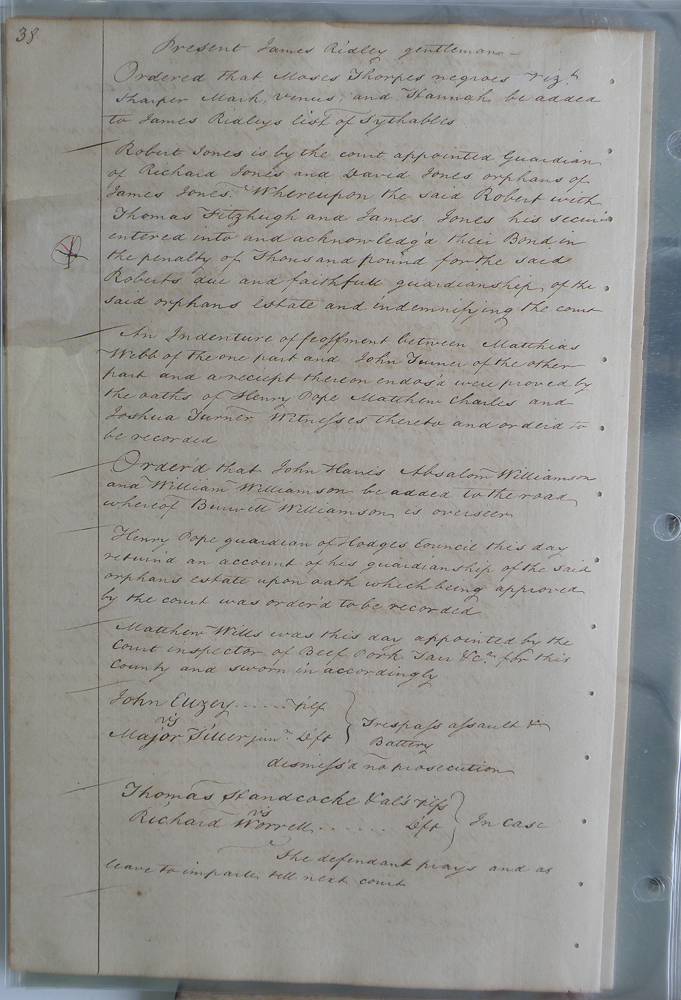 38
Present James Ridley gentleman
Ordered that Moses Thorpes negroes vizt.
Sharper Mark, Venus, and Hannah be added
to James Ridleys list of Tythables
Robert Jones is by the court appointed Guardian
of Richard Jones and David Jones orphans of
James Jones. Whereupon the said Robert with
Thomas Fitzhugh and James Jones his secur
entered into and acknowledg'd their Bond in
the penalty of Thousand pound for the said
Roberts due and faithfull guardianship of the
said orphans Estate and indemnifying the court
An Indenture of feoffment between Matthias
Webb of the one part and John Turner of the other
part and a reciept thereon endos'd were proved by
the oaths of Henry Pope Matthew Charles and
Joshua Turner Witnesses thereto and orderd to
be recorded
Order'd that John Absalom Williamson
and William Williamson be added to the road
whereof Burwell Williamson is overseer
Henry Pope guardian of Hodges Council this day
return'd an account of his guardianship of the said
orphan's estate upon oath which being approved
by the court was order'd to be recorded
Matthew Wills was this day appointed by the
Court inspector of Beef Pork Tarr &ca. for this
County and sworn in accordingly
John Euzey ...... Plf
vs
Major Tiller junr. Dft
Trespass assault &
Battery
dismiss'd no prosecution
Thomas Handcocke & al's Plfs
vs
Richard Worrell ...... Dft
In Case
The defendant prays and as
leave to imparle till next court